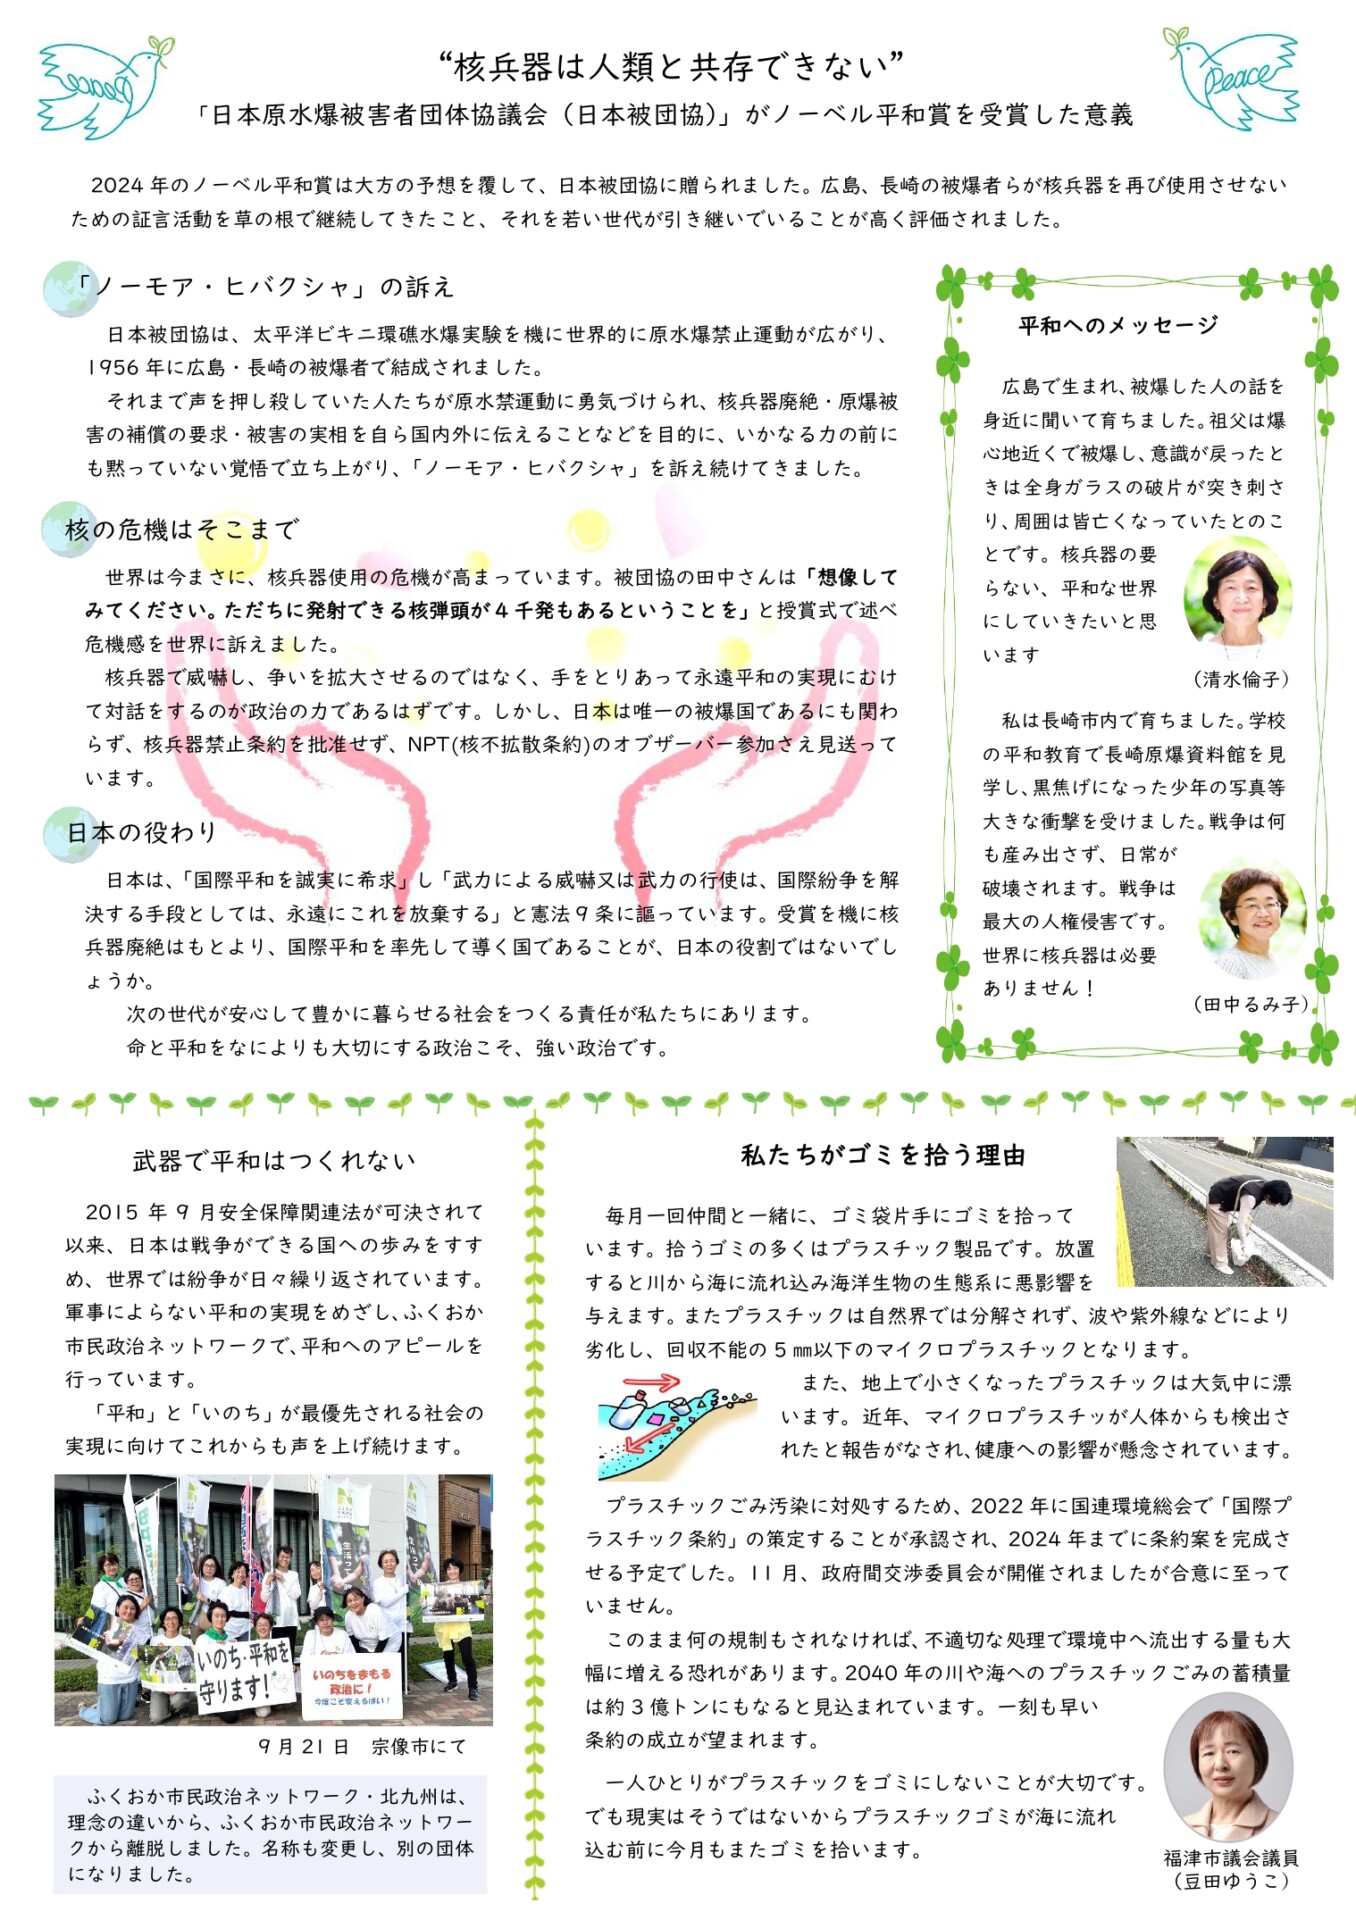 “核兵器は人類と共存できない”
「日本原水爆被害者団体協議会（日本被団協）」がノーベル平和賞を受賞した意義
Peace
Peace
2024 年のノーベル平和賞は大方の予想を覆して、日本被団協に贈られました。広島、長崎の被爆者らが核兵器を再び使用させない
ための証言活動を草の根で継続してきたこと、それを若い世代が引き継いでいることが高く評価されました。
「ノーモア・ヒバクシャ」の訴え
日本被団協は、太平洋ビキニ環礁水爆実験を機に世界的に原水爆禁止運動が広がり、
1956 年に広島・長崎の被爆者で結成されました。
それまで声を押し殺していた人たちが原水禁運動に勇気づけられ、核兵器廃絶・原爆被
害の補償の要求・被害の実相を自ら国内外に伝えることなどを目的に、いかなる力の前に
も黙っていない覚悟で立ち上がり、「ノーモア・ヒバクシャ」を訴え続けてきました。
核の危機はそこまで
世界は今まさに、核兵器使用の危機が高まっています。被団協の田中さんは「想像して
みてください。ただちに発射できる核弾頭が４千発もあるということを」と授賞式で述べ
危機感を世界に訴えました。
核兵器で威嚇し、争いを拡大させるのではなく、手をとりあって永遠平和の実現にむけ
て対話をするのが政治の力であるはずです。しかし、日本は唯一の被爆国であるにも関わ
らず、核兵器禁止条約を批准せず、NPT(核不拡散条約)のオブザーバー参加さえ見送って
います。
日本の役わり
日本は、「国際平和を誠実に希求」し「武力による威嚇又は武力の行使は、国際紛争を解
決する手段としては、永遠にこれを放棄する」と憲法９条に謳っています。受賞を機に核
兵器廃絶はもとより、国際平和を率先して導く国であることが、日本の役割ではないでし
ょうか。
次の世代が安心して豊かに暮らせる社会をつくる責任が私たちにあります。
命と平和をなによりも大切にする政治こそ、強い政治です。
平和へのメッセージ
広島で生まれ、被爆した人の話を
身近に聞いて育ちました。祖父は爆
心地近くで被爆し、意識が戻ったと
きは全身ガラスの破片が突き刺さ
り、周囲は皆亡くなっていたとのこ
とです。核兵器の要
らない、平和な世界
にしていきたいと思
います
（清水倫子）
私は長崎市内で育ちました。学校
の平和教育で長崎原爆資料館を見
学し、黒焦げになった少年の写真等
大きな衝撃を受けました。戦争は何
も産み出さず、日常が
破壊されます。戦争は
最大の人権侵害です。
世界に核兵器は必要
ありません！
（田中るみ子）
武器で平和はつくれない
2015 年 9 月安全保障関連法が可決されて
以来、日本は戦争ができる国への歩みをすす
め、世界では紛争が日々繰り返されています。
軍事によらない平和の実現をめざし、ふくおか
市民政治ネットワークで、平和へのアピールを
行っています。
「平和」と「いのち」が最優先される社会の
実現に向けてこれからも声を上げ続けます。
いのち・平和を
守ります！
いのちをまもる
政治に！
今度こそ変えるばい！
9 月 21 日　宗像市にて
ふくおか市民政治ネットワーク・北九州は、
理念の違いから、ふくおか市民政治ネットワー
クから離脱しました。名称も変更し、別の団体
になりました。
私たちがゴミを拾う理由
毎月一回仲間と一緒に、ゴミ袋片手にゴミを拾って
います。拾うゴミの多くはプラスチック製品です。放置
すると川から海に流れ込み海洋生物の生態系に悪影響を
与えます。またプラスチックは自然界では分解されず、波や紫外線などにより
劣化し、回収不能の 5 ㎜以下のマイクロプラスチックとなります。
また、地上で小さくなったプラスチックは大気中に漂
います。近年、マイクロプラスチッが人体からも検出さ
れたと報告がなされ、健康への影響が懸念されています。
プラスチックごみ汚染に対処するため、2022 年に国連環境総会で「国際プ
ラスチック条約」の策定することが承認され、2024 年までに条約案を完成さ
せる予定でした。11 月、政府間交渉委員会が開催されましたが合意に至って
いません。
このまま何の規制もされなければ、不適切な処理で環境中へ流出する量も大
幅に増える恐れがあります。2040 年の川や海へのプラスチックごみの蓄積量
は約３億トンにもなると見込まれています。一刻も早い
条約の成立が望まれます。
一人ひとりがプラスチックをゴミにしないことが大切です。
でも現実はそうではないからプラスチックゴミが海に流れ
込む前に今月もまたゴミを拾います。
福津市議会議員
（豆田ゆうこ）